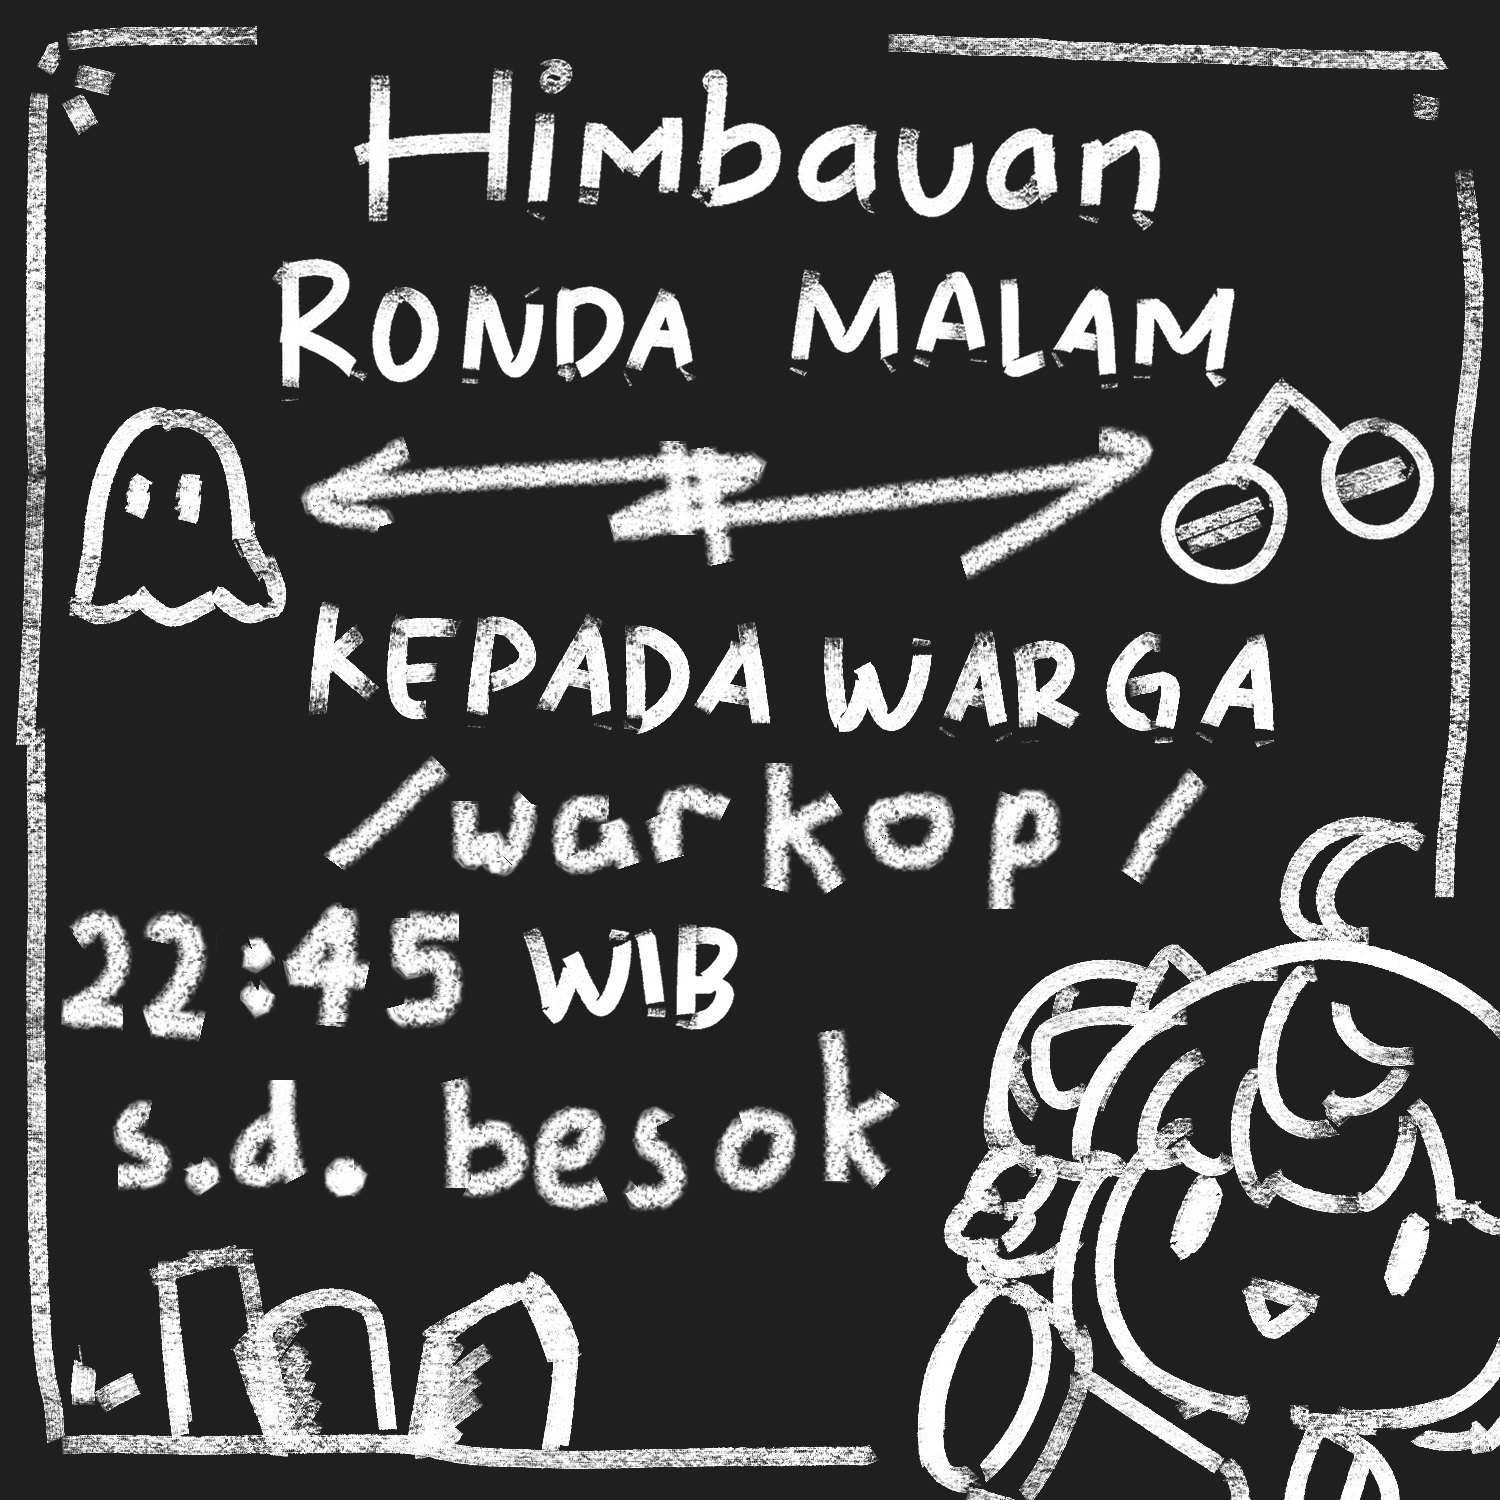 Himbauan
RONDA MALAM
KEPADA WARGA
/warkop/
22:45 WIB
s.d. besok